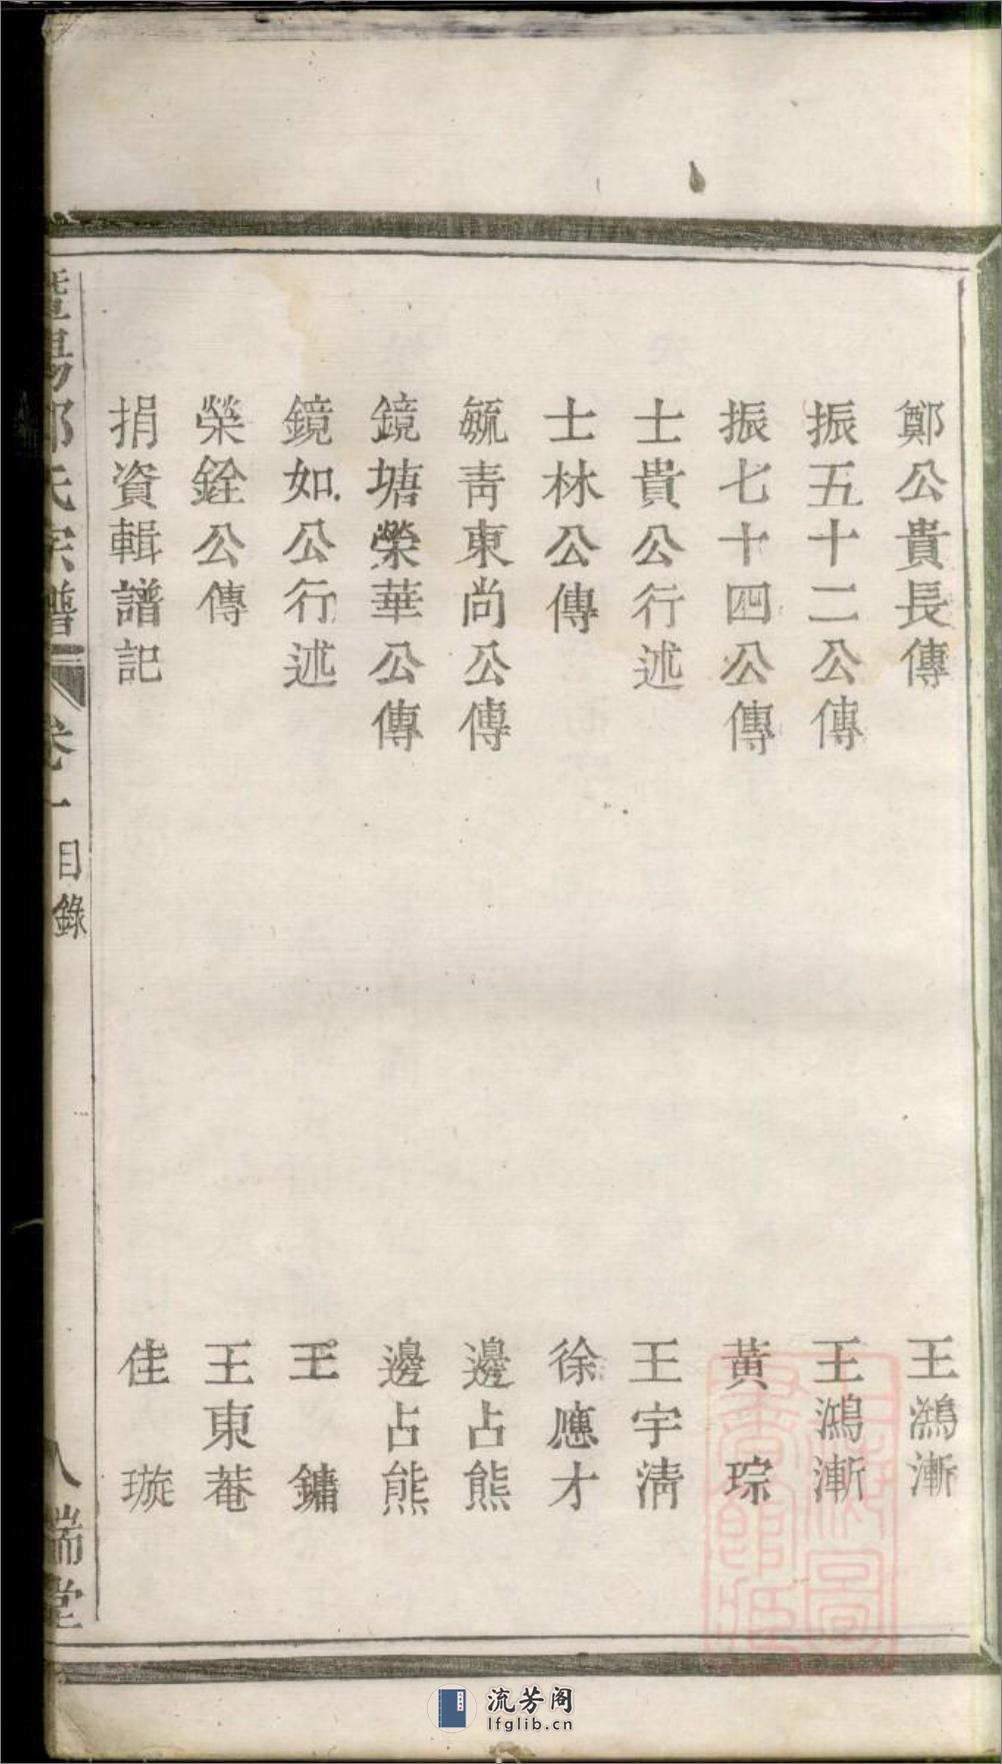 鄭公貴長傳 王鴻漸
振五十二公傳 王鴻漸
振七十四公傳 黃琮
士貴公行述 王宇淸
士林公傳 徐應才
毓靑東尚公傳 邊占熊
鏡塘榮華公傳 邊占熊
鏡如公行述 王鏞
榮銓公傳 王東菴
捐資輯譜記 佳璇
暨陽鄭氏宗譜 卷一 目錄 八 瑞堂
流芳阁
lfglib.cn